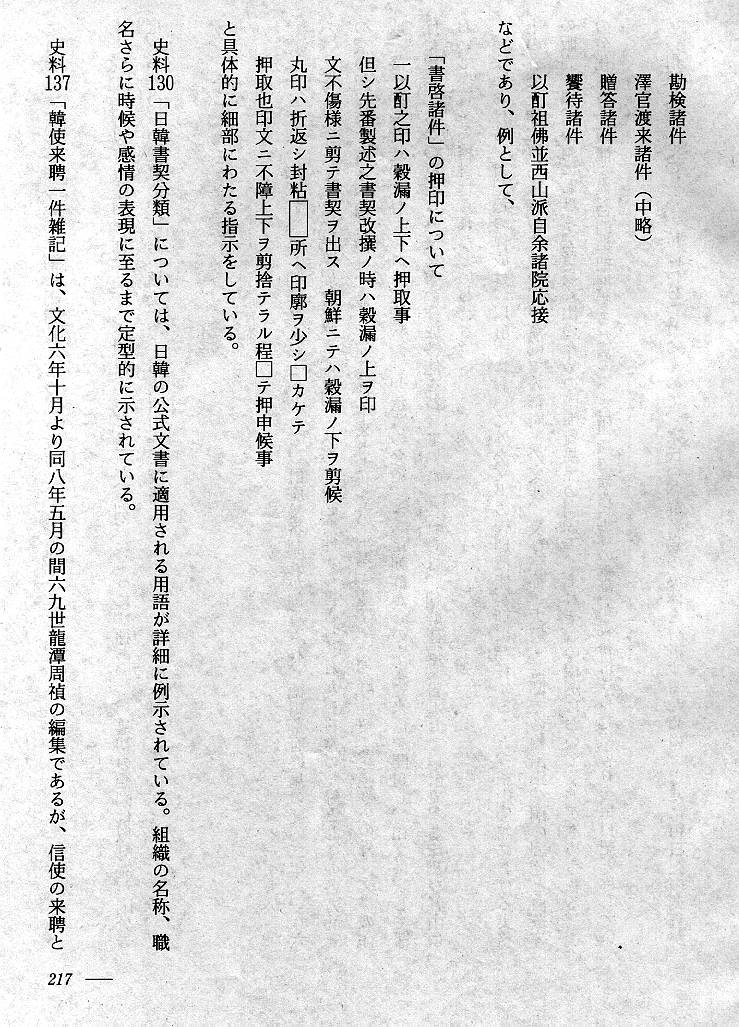 勘検諸件
澤官渡来諸件（中略）
贈答諸件
饗待諸件
以酊祖佛並西山派自余諸院応接
などであり、例として、
「書啓諸件」の押印について
一以酊之印ハ穀漏ノ上下ヘ押取事
但シ先番製述之書契改撰ノ時ハ穀漏ノ上ヲ印
文不傷様ニ剪テ書契ヲ出ス　朝鮮ニテハ穀漏ノ下ヲ剪候
丸印ハ折返シ封粘□□所ヘ印廓ヲ少シ□カケテ
押取也印文ニ不障上下ヲ剪捨テラル程□テ押申候事
と具体的に細部にわたる指示をしている。
史料130「日韓書契分類」については、日韓の公式文書に適用される用語が詳細に例示されている。組織の名称、職
名さらに時候や感情の表現に至るまで定型的に示されている。
史料137「韓使来聘一件雑記」は、文化六年十月より同八年五月の間六九世龍潭周禎の編集であるが、信使の来聘と
217